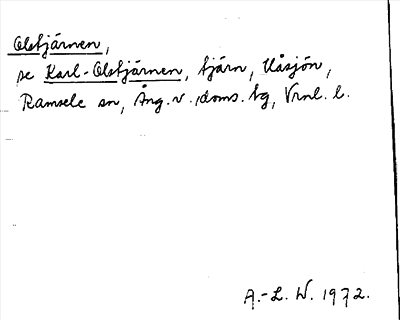 Olstjärnen,
se Karl-Olstjärnen, tjärn, Uåsjön,
Ramsele sn, Ång. v. doms. tg, Vrnl. l.
A.-L. W. 1972.